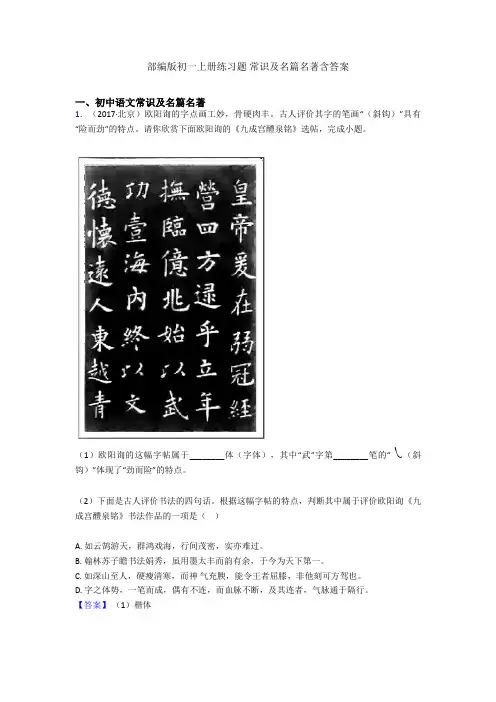 部编版初一上册练习题 常识及名篇名著含答案
一、初中语文常识及名篇名著
1．（2017·北京）欧阳询的字点画工妙，骨硬肉丰。古人评价其字的笔画“（斜钩）”具有
“险而劲”的特点。请你欣赏下面欧阳询的《九成宫醴泉铭》选帖，完成小题。
皇帝爰在弱冠經
營四方逯乎立年
撫臨億兆始以武
功壹海内終以文
德懷遠人東越青
（1）欧阳询的这幅字帖属于________体（字体），其中“武”字第________笔的“㇂（斜
钩）”体现了“劲而险”的特点。
（2）下面是古人评价书法的四句话。根据这幅字帖的特点，判断其中属于评价欧阳询《九
成宫醴泉铭》书法作品的一项是（ ）
A. 如云鹄游天，群鸿戏海，行间茂密，实亦难过。
B. 翰林苏子瞻书法娟秀，虽用墨太丰而韵有余，于今为天下第一。
C. 如深山至人，硬瘦清寒，而神 气充腴，能令王者屈膝，非他刻可方驾也。
D. 字之体势，一笔而成，偶有不连，而血脉不断，及其连者，气脉通于隔行。
【答案】（1）楷体